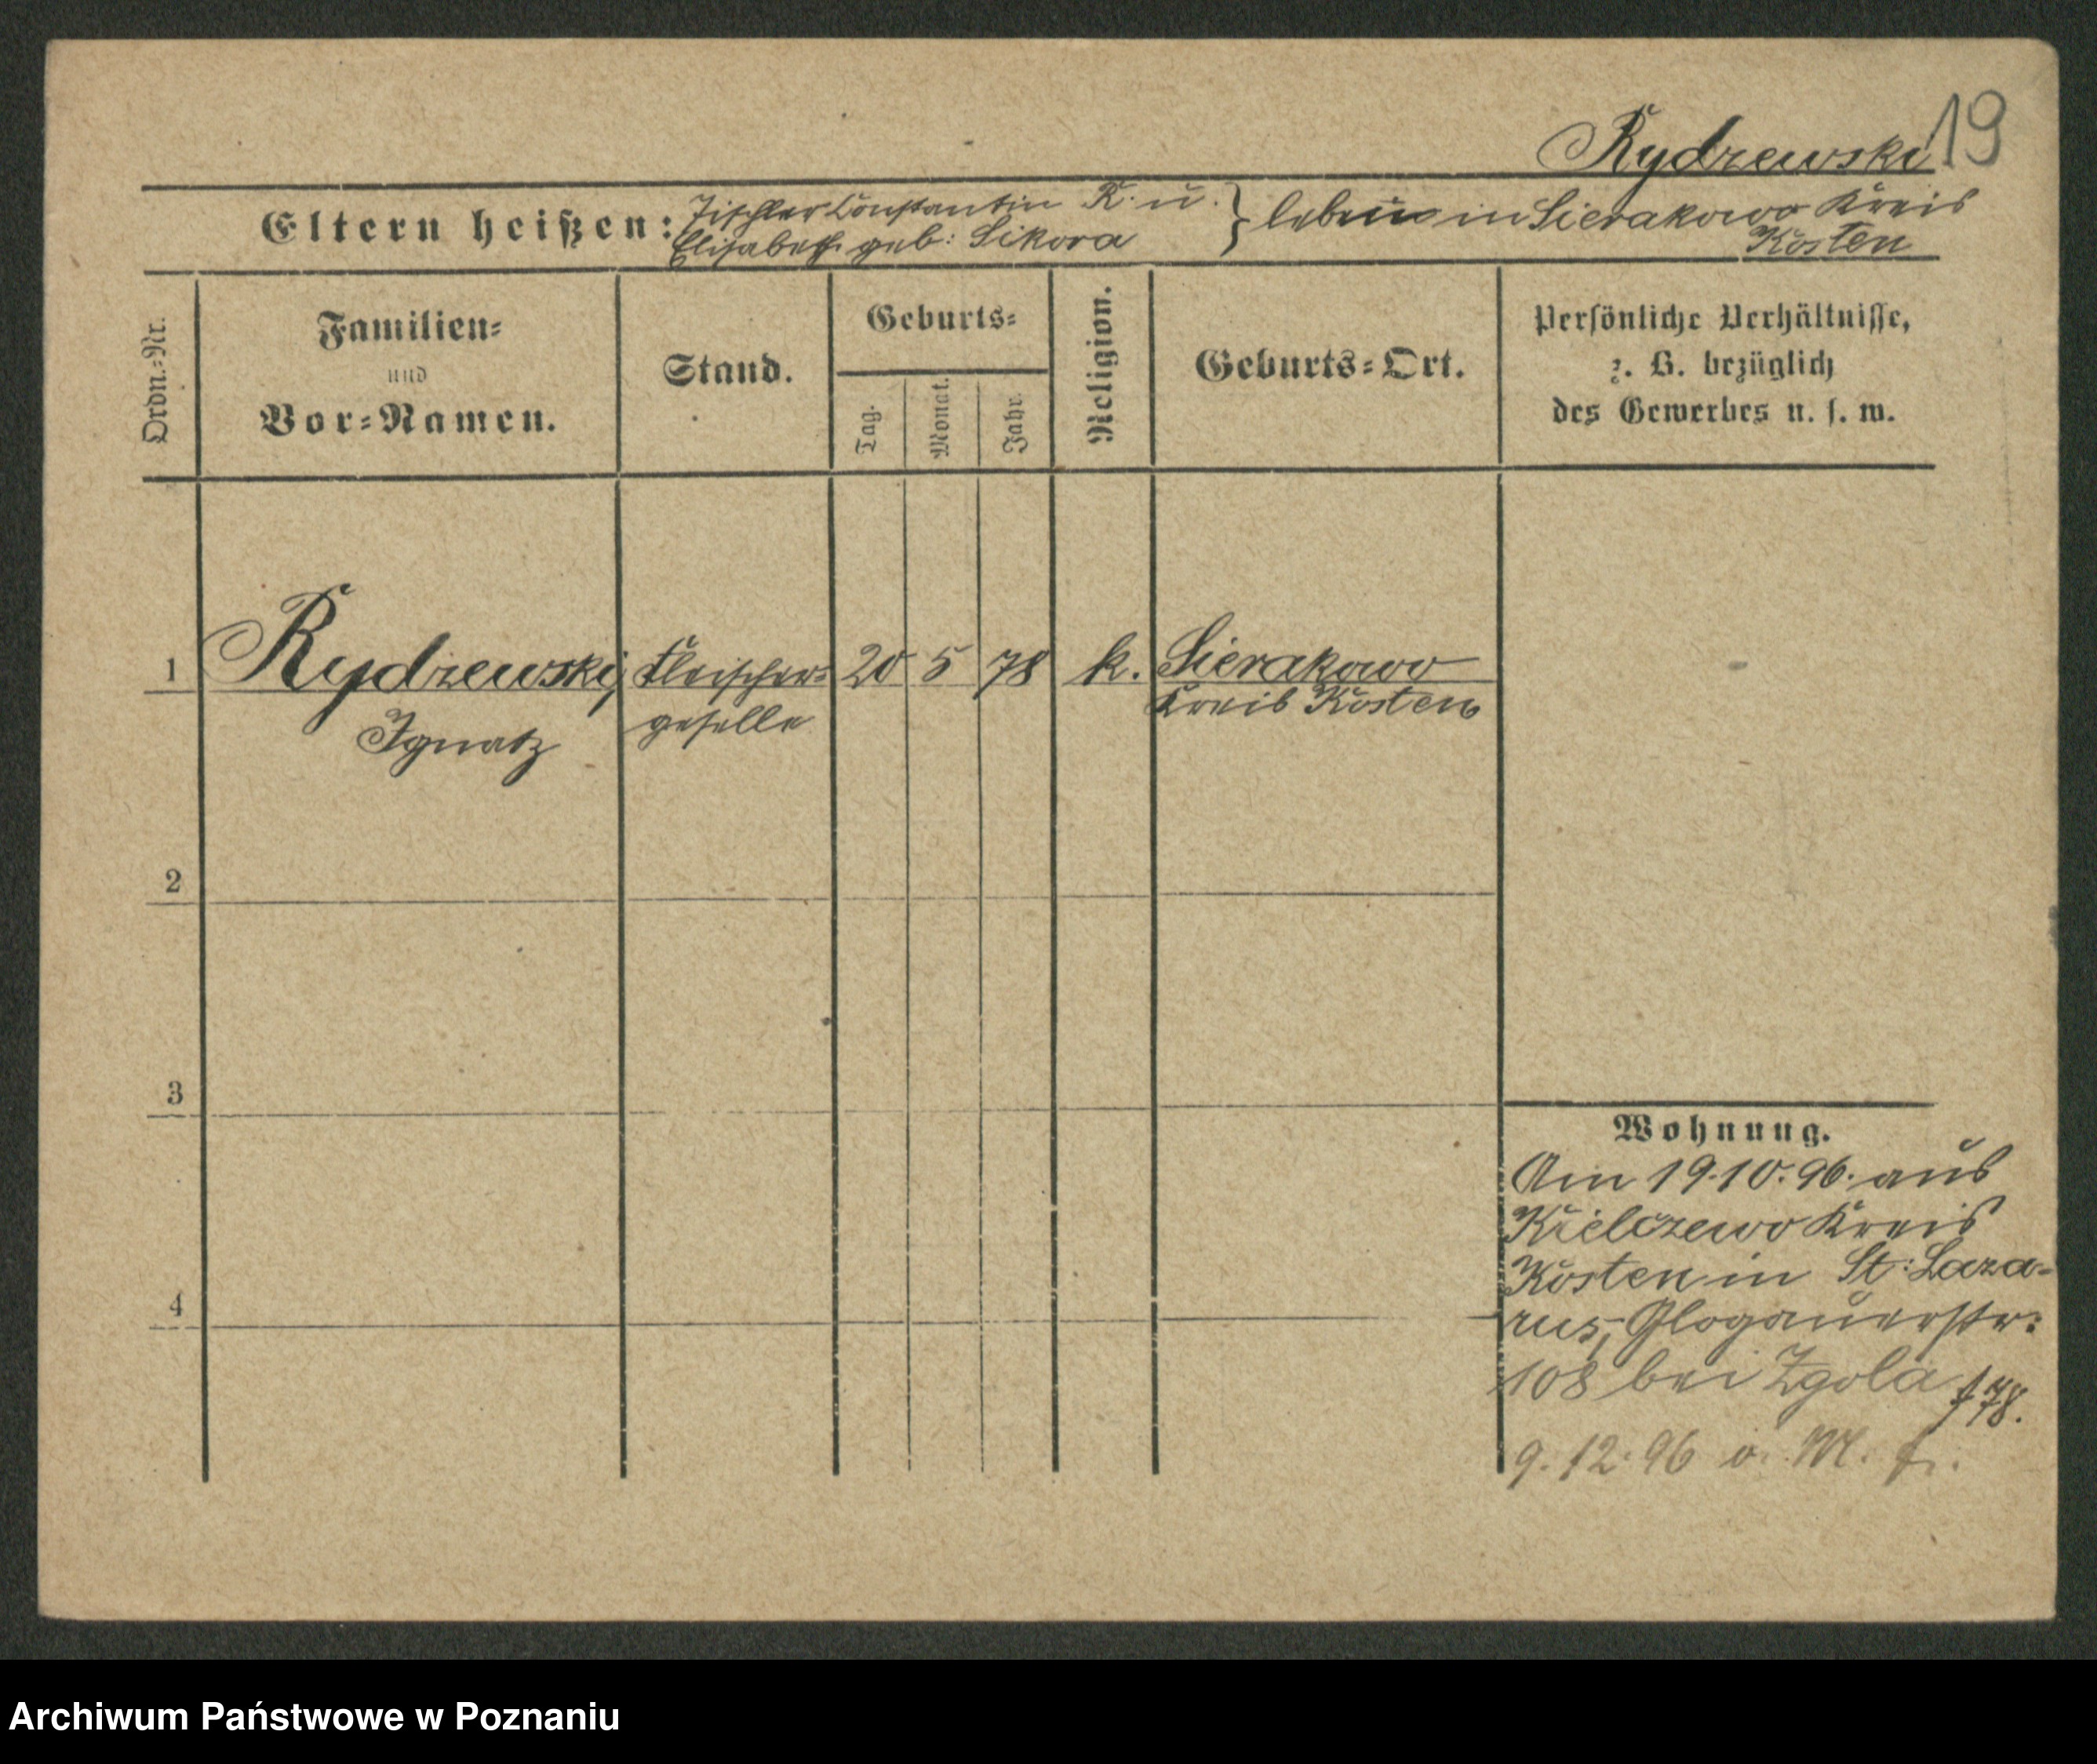 Rydrewski 19
Eltern heißen: Tischler Constantin R. u.
Elisabeth geb: Sikora } leben in Sierakowo Kreis
Kosten
Ordn.-Nr.
Familien-
und
Vor-Namen.
Stand.
Geburts-
Tag.
Monat.
Jahr.
Religion.
Geburts-Ort.
Persönliche Verhältnisse,
z. B. bezüglich
des Gewerbes u. s. w.
1 Rydrewski, Fleischer- 20 5 78 k. Sierakowo
Ignatz geselle Kreis Kosten
2
3
4
Wohnung.
Am 19.10.96. aus
Kielczewo Kreis
Kosten in St: Laza-
rus, Glogauerstr:
108 bei Zgola
9.12.96 M.
Archiwum Państwowe w Poznaniu